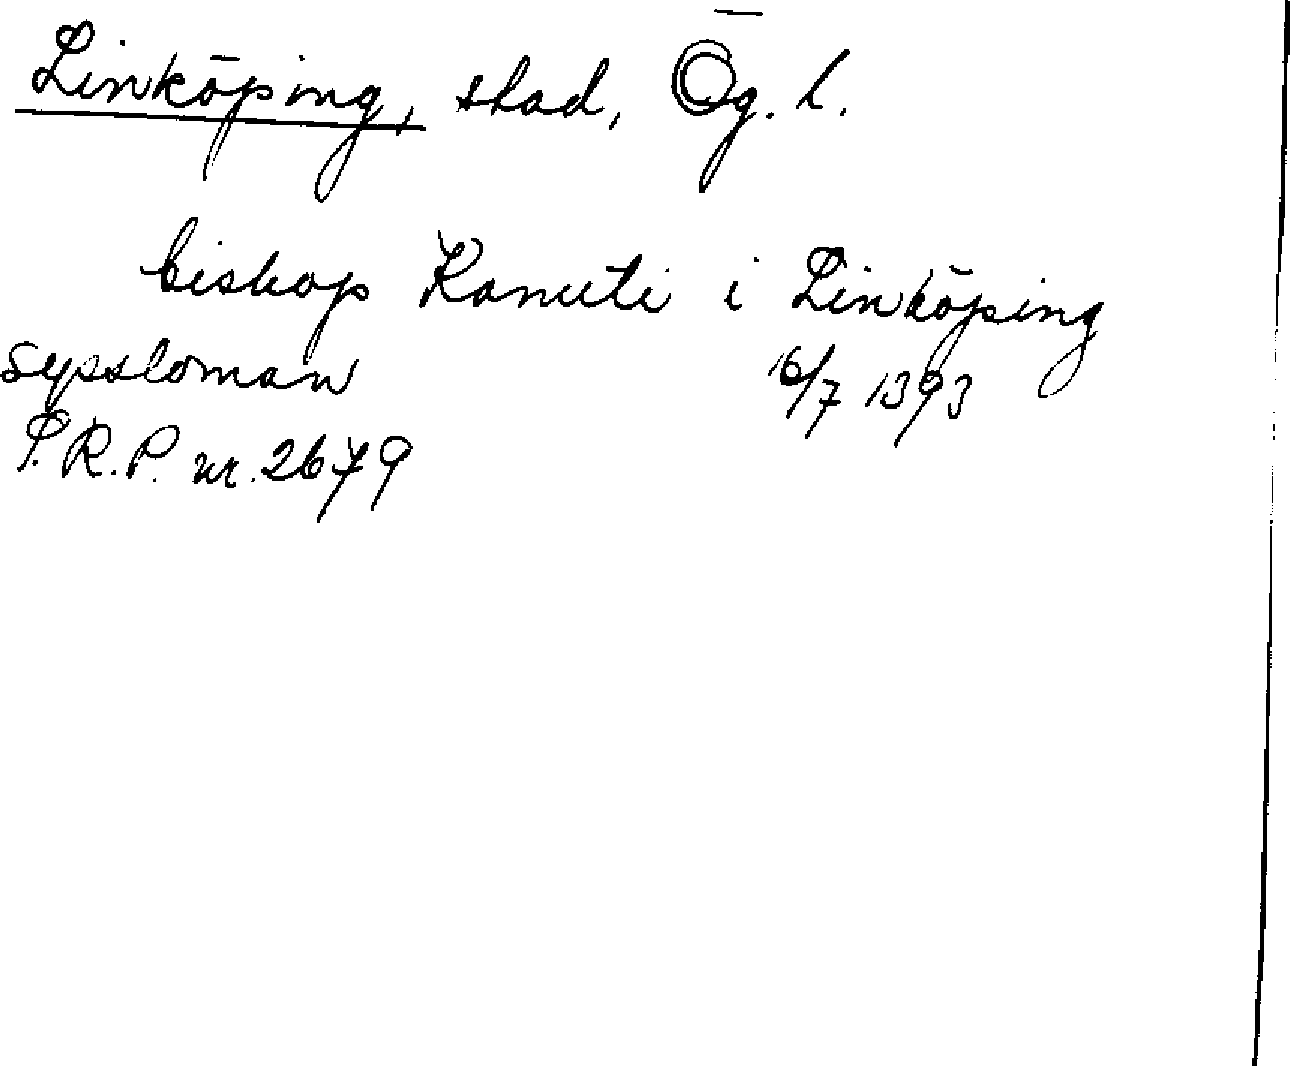 Linköping, stad, Ög. l.
biskop Kanuti i Linköping
syssloman 16/7 1393
P.R.P. nr. 2679